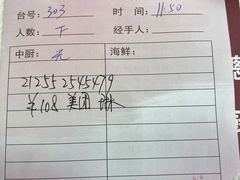 台号：303 时间：11:50
人数：下 经手人：
中厨：无 海鲜：
212552545479
￥108 美团